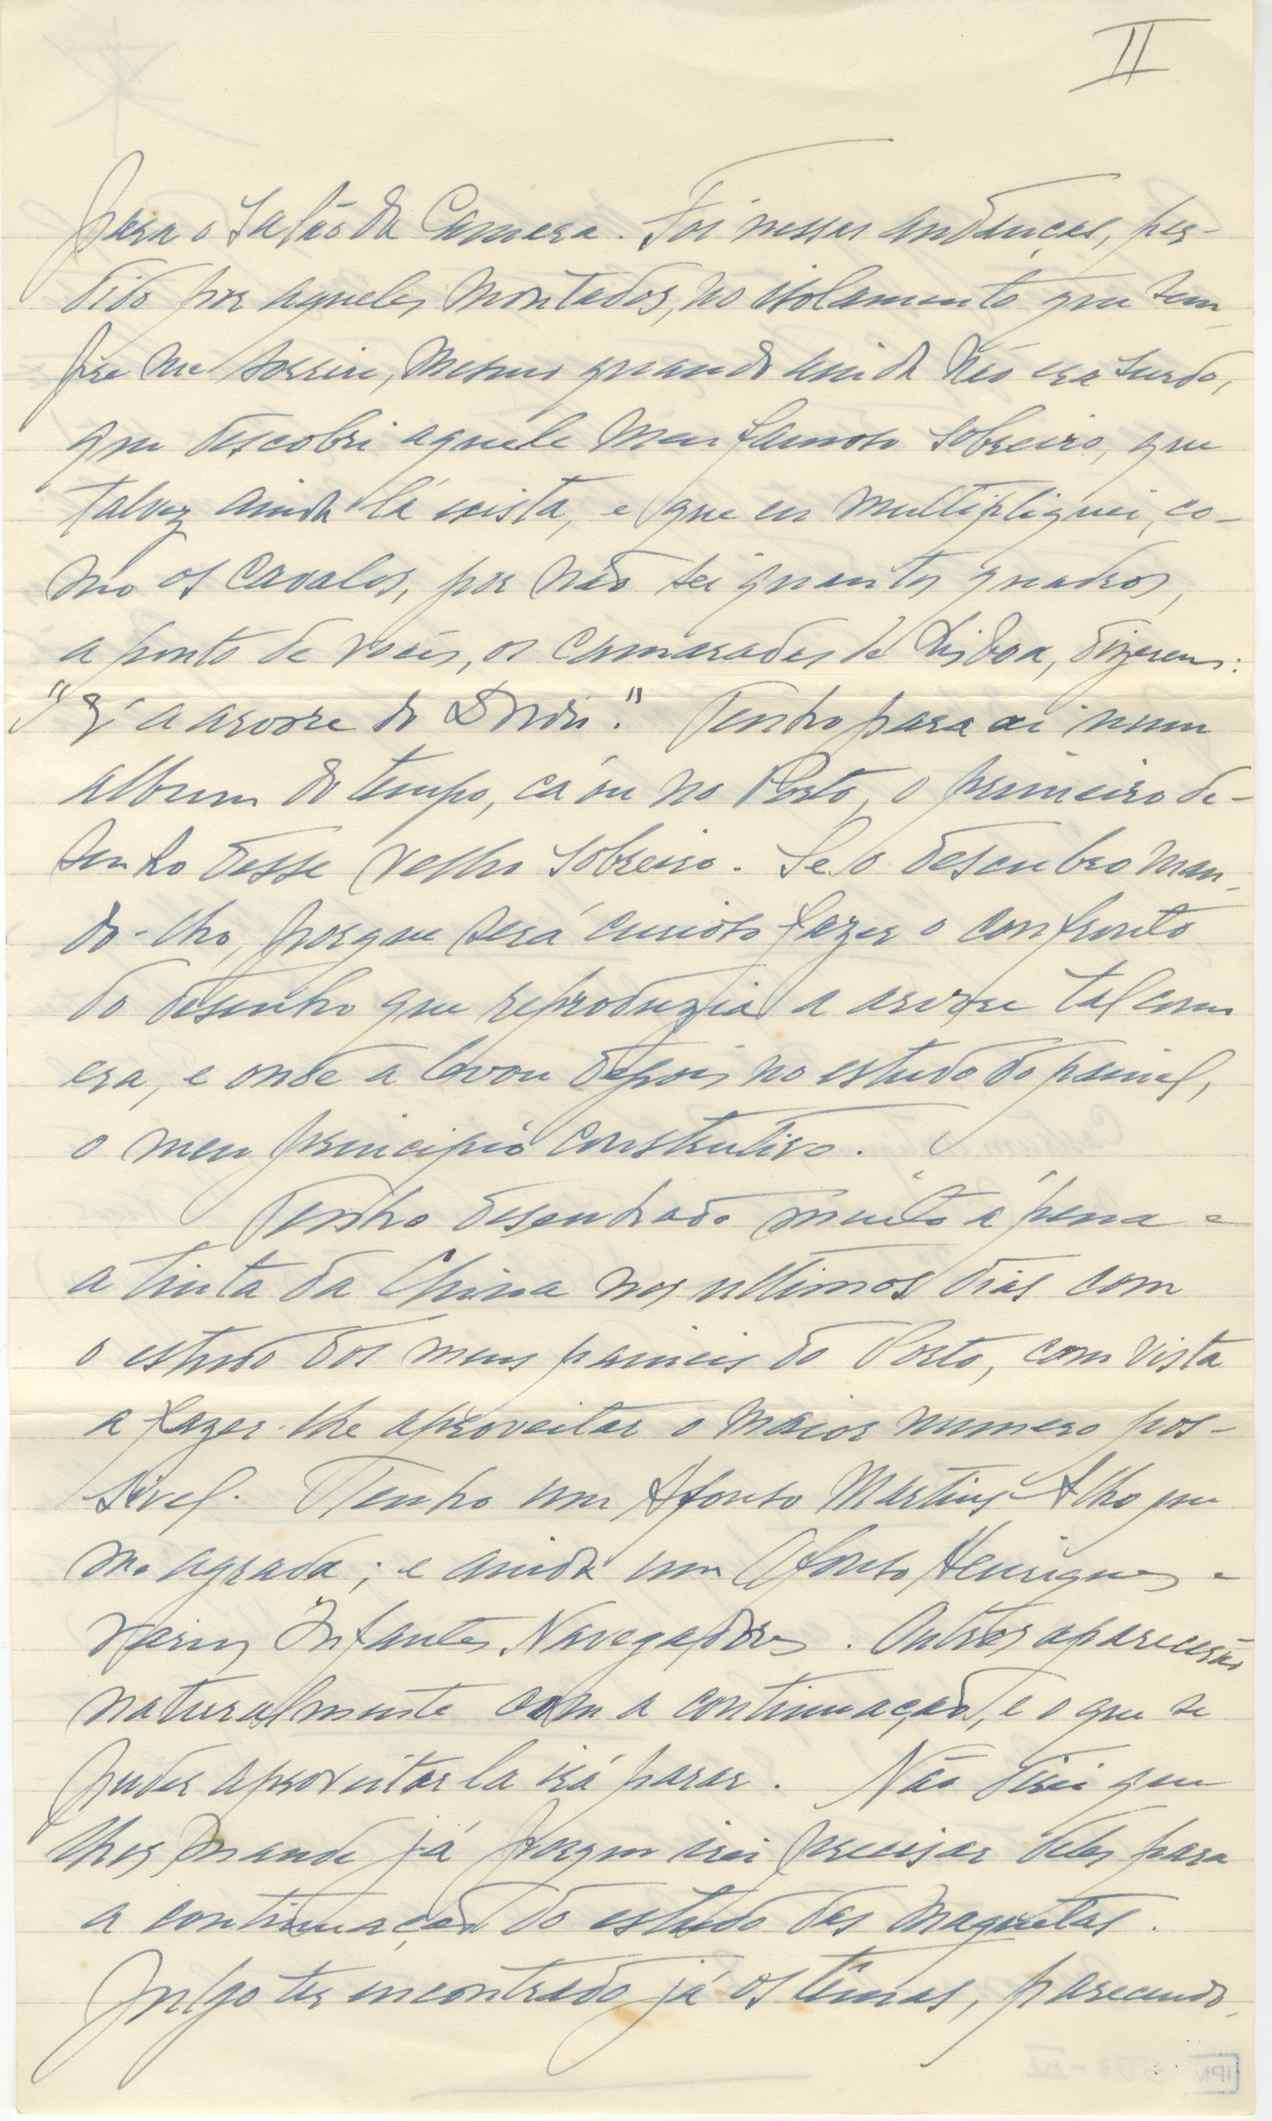 II
para o Salão da Camara. Foi nessas andanças, per-
dido por aqueles montados, no isolamento que sem-
pre me sorriu, mesmo quando ainda não era surdo,
que descobri aquele meu famoso sobreiro, que
talvez ainda lá exista, e que eu multipliquei, co-
mo os cavalos, por não sei quantos quadros,
a ponto de vocês, os camaradas de Lisboa, dizerem:
"É a arvore do Dordio." Tenho para ai num
album do tempo, cá ou no Porto, o primeiro de-
senho desse velho sobreiro. Se o descubro man-
do-lho, porque será curioso fazer o confronto
do desenho que reproduzia a arvore tal como
era, e onde a levou depois no estudo do painel,
o meu principio construtivo.
Tenho desenhado muito á pena e
a tinta da China nos ultimos dias com
o estudo dos meus paineis do Porto, com vista
a fazer-lhe aproveitar o maior numero pos-
sivel. Tenho um Afonso Martins Alho que
me agrada; e ainda um Afonso Henriques e
varios Infantes Navegadores. Outros aparecerão
naturalmente com a continuação, e o que se
puder aproveitar la irá parar. Não direi que
lhos mande já porque irei precisar deles para
a continuação do estudo das maquetas.
Julgo ter encontrado já os temas, parecendo-
IPM